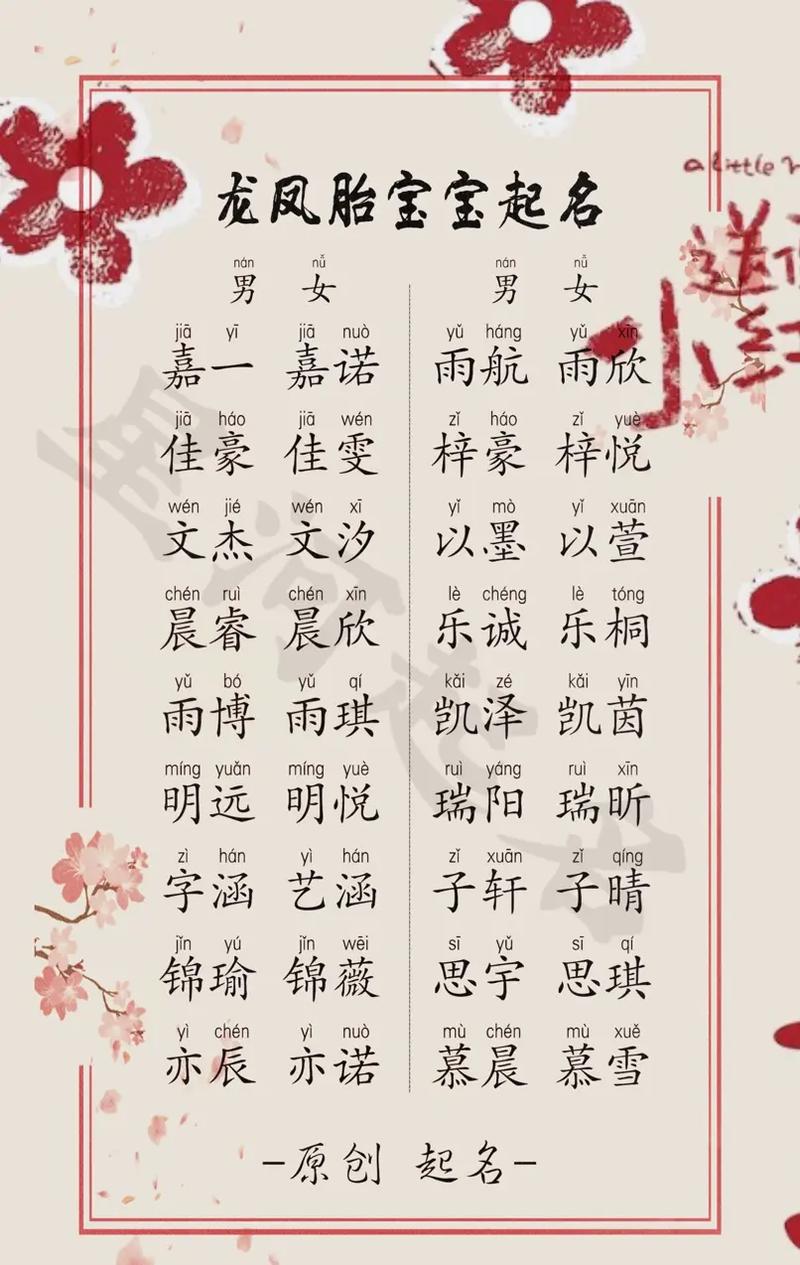 龙凤胎宝宝起名
nán nǚ nán nǚ
男 女 男 女
jiā yī jiā nuò yǔ háng yǔ xīn
嘉一 嘉诺 雨航 雨欣
jiā háo jiā wén zǐ háo zǐ yuè
佳豪 佳雯 梓豪 梓悦
wén jié wén xī yǐ mò yǐ xuān
文杰 文汐 以墨 以萱
chén ruì chén xīn lè chéng lè tóng
晨睿 晨欣 乐诚 乐桐
yǔ bó yǔ qí kǎi zé kǎi yīn
雨博 雨琪 凯泽 凯茵
míng yuǎn míng yuè ruì yáng ruì xīn
明远 明悦 瑞阳 瑞昕
zì hán yì hán zǐ xuān zǐ qíng
字涵 艺涵 子轩 子晴
jǐn yú jǐn wēi sī yǔ sī qí
锦瑜 锦薇 思宇 思琪
yì chén yì nuò mù chén mù xuě
亦辰 亦诺 慕晨 慕雪
-原创 起名-
a little
送
小红
星河起名